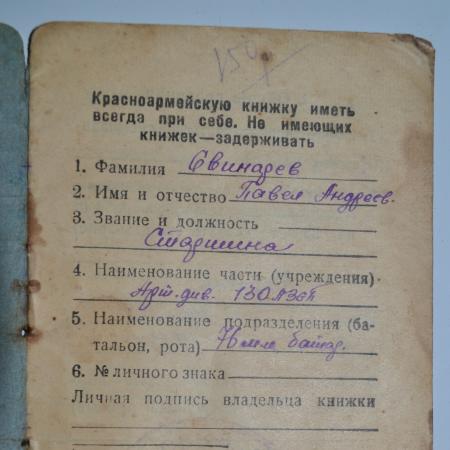 150
Красноармейскую книжку иметь
всегда при себе. Не имеющих
книжек—задерживать
1. Фамилия Свинарев
2. Имя и отчество Павел Андреев.
3. Звание и должность
Старшина
4. Наименование части (учреждения)
Арт. див. 130
5. Наименование подразделения (ба-
тальон, рота) 76 мм батар.
6. № личного знака
Личная подпись владельца книжки